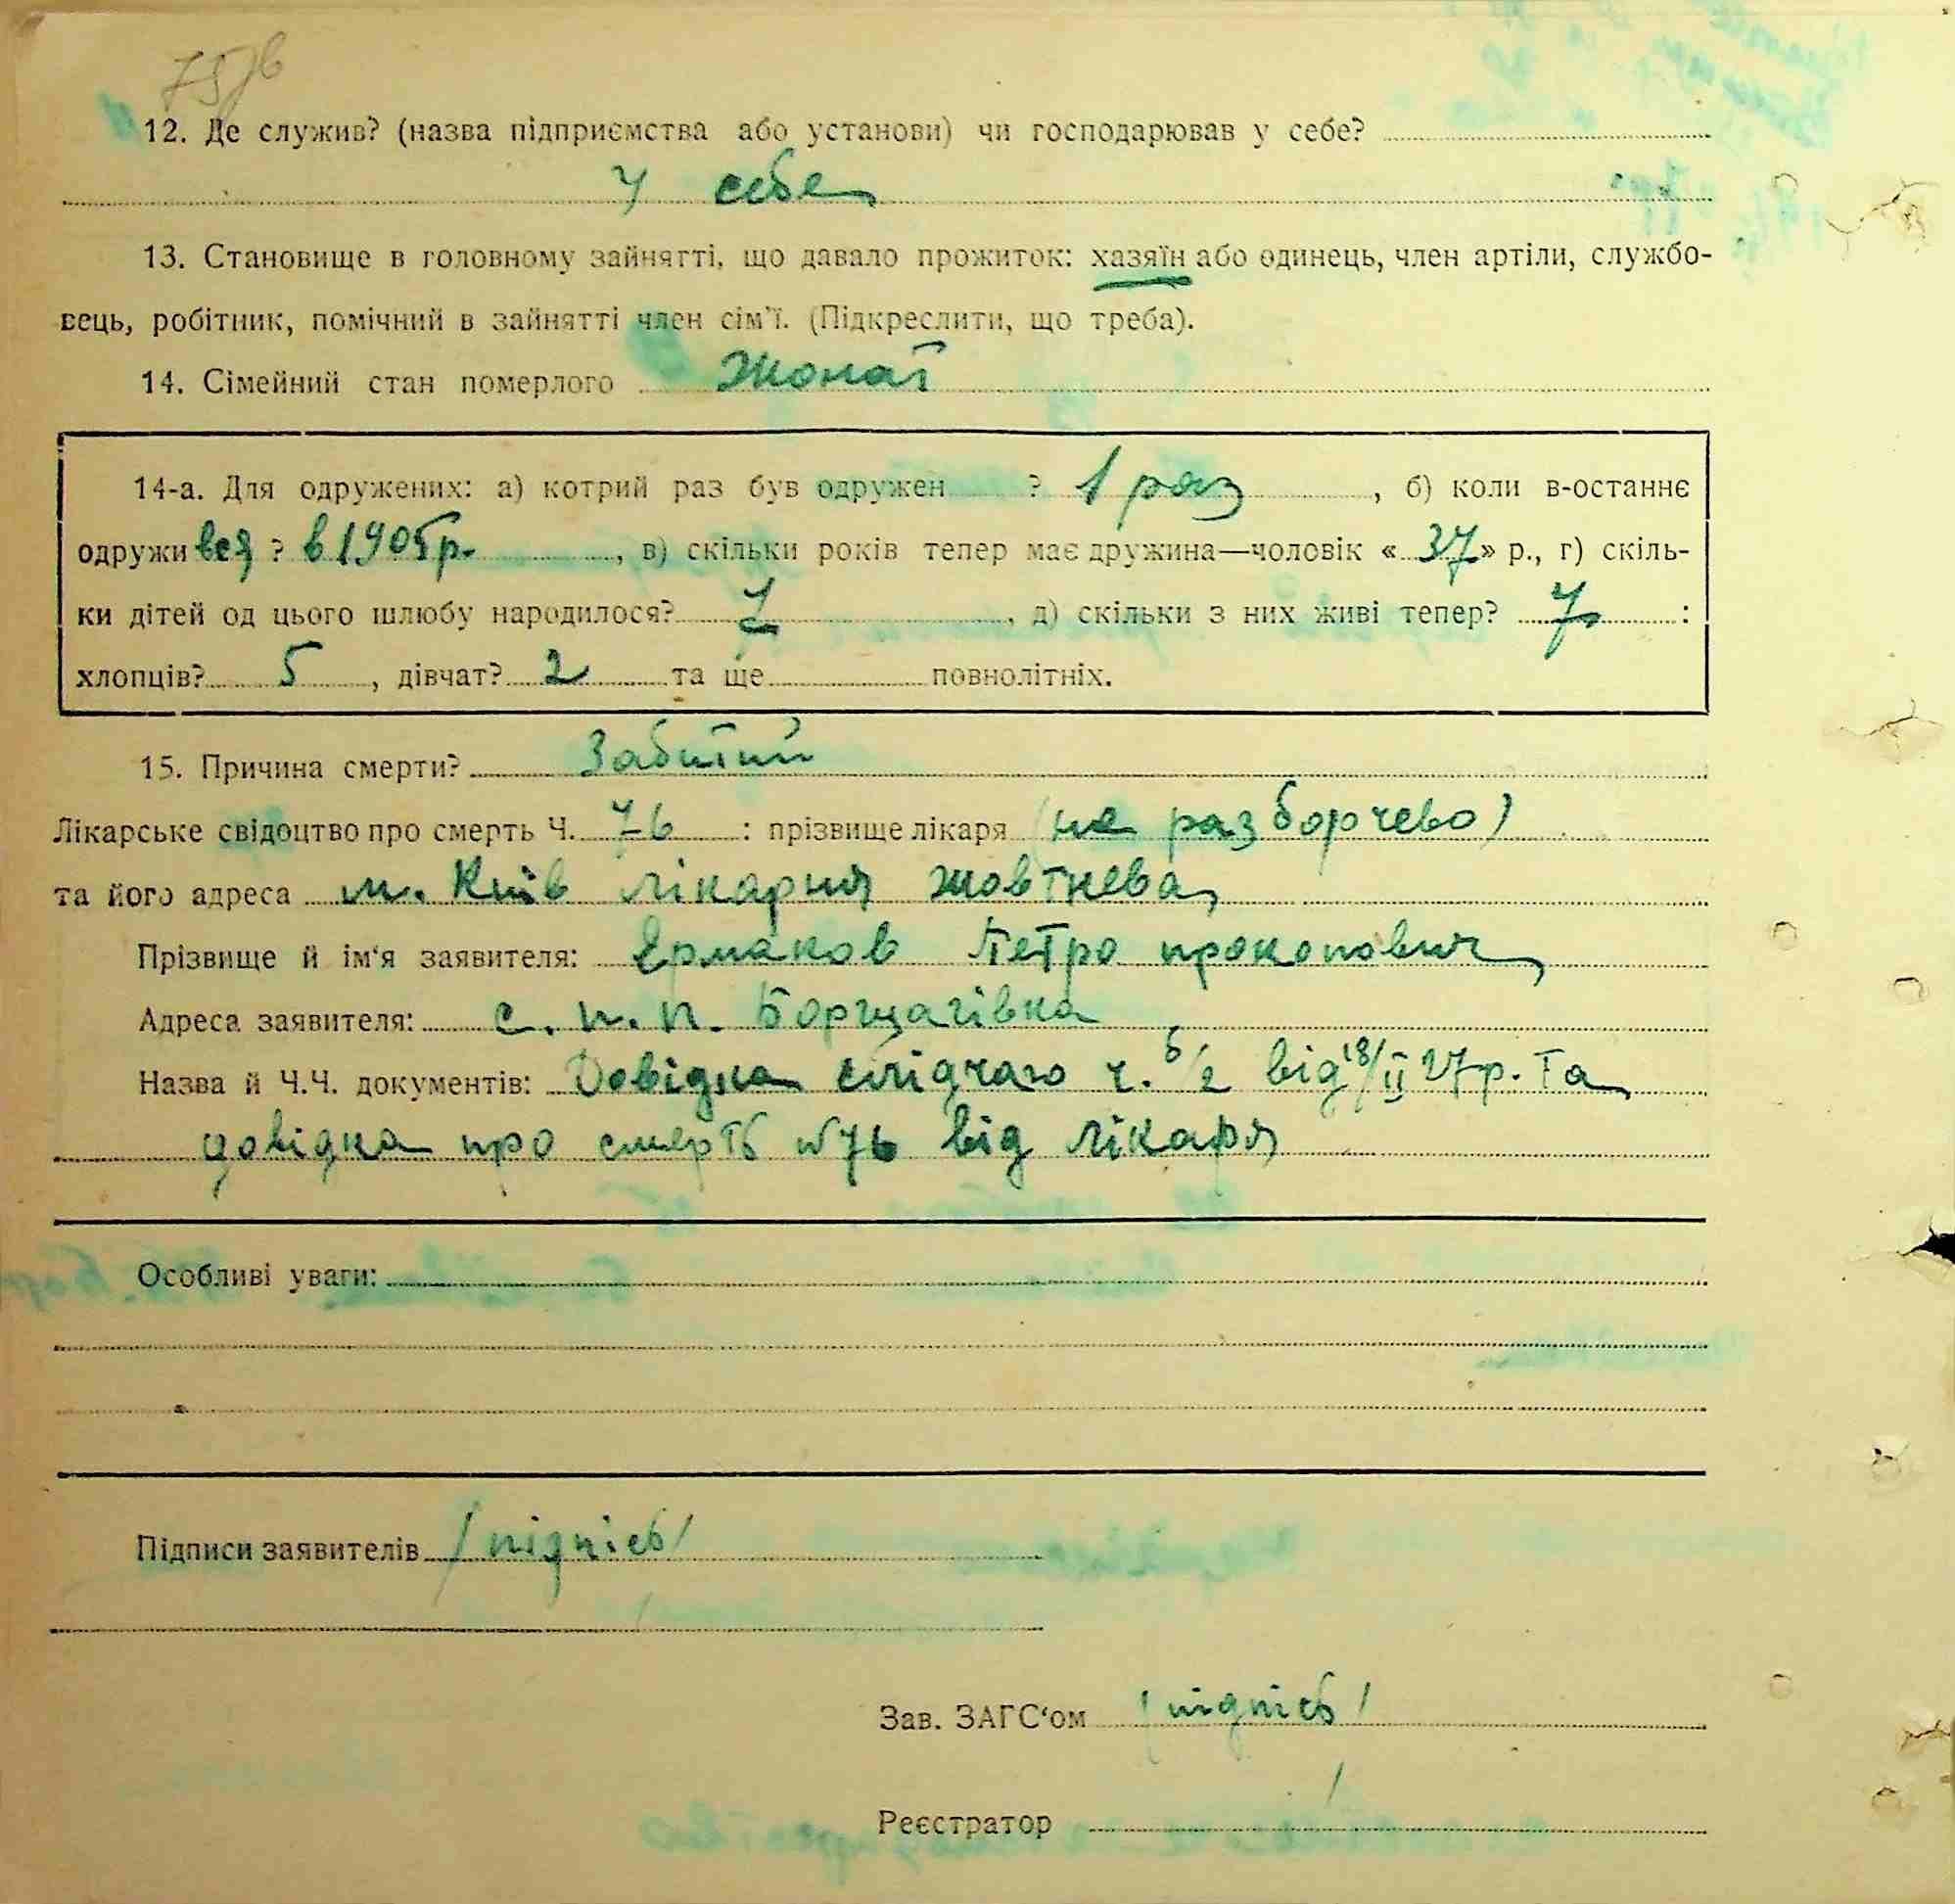 12. Де служив? (назва підприємства або установи) чи господарював у себе?
у себе
13. Становище в головному зайнятті, що давало прожиток: хазяїн або одинець, член артіли, службо-
вець, робітник, помічний в зайнятті член сім'ї. (Підкреслити, що треба).
14. Сімейний стан померлого Жонат
14-а. Для одружених: а) котрий раз був одружен ? 1 раз, б) коли в-останнє
одружився ? в 1905 р., в) скільки років тепер має дружина—чоловік «37» р., г) скіль-
ки дітей од цього шлюбу народилося? 7, д) скільки з них живі тепер? 7 :
хлопців? 5, дівчат? 2 та ще повнолітніх.
15. Причина смерти? Забитий
Лікарське свідоцтво про смерть Ч. 76 : прізвище лікаря (не разборчево)
та його адреса м. Київ лікарня жовтнева
Прізвище й ім'я заявителя: Ермаков Петро прокопович
Адреса заявителя: с. п. п. Борщагівка
Назва й Ч.Ч. документів: Довідка слідчого ч. 6/2 від 18/II 27р. Та
довідка про смерть №76 від лікаря
Особливі уваги:
Підписи заявителів /підпісь/
Зав. ЗАГС'ом /підпісь/
Реєстратор